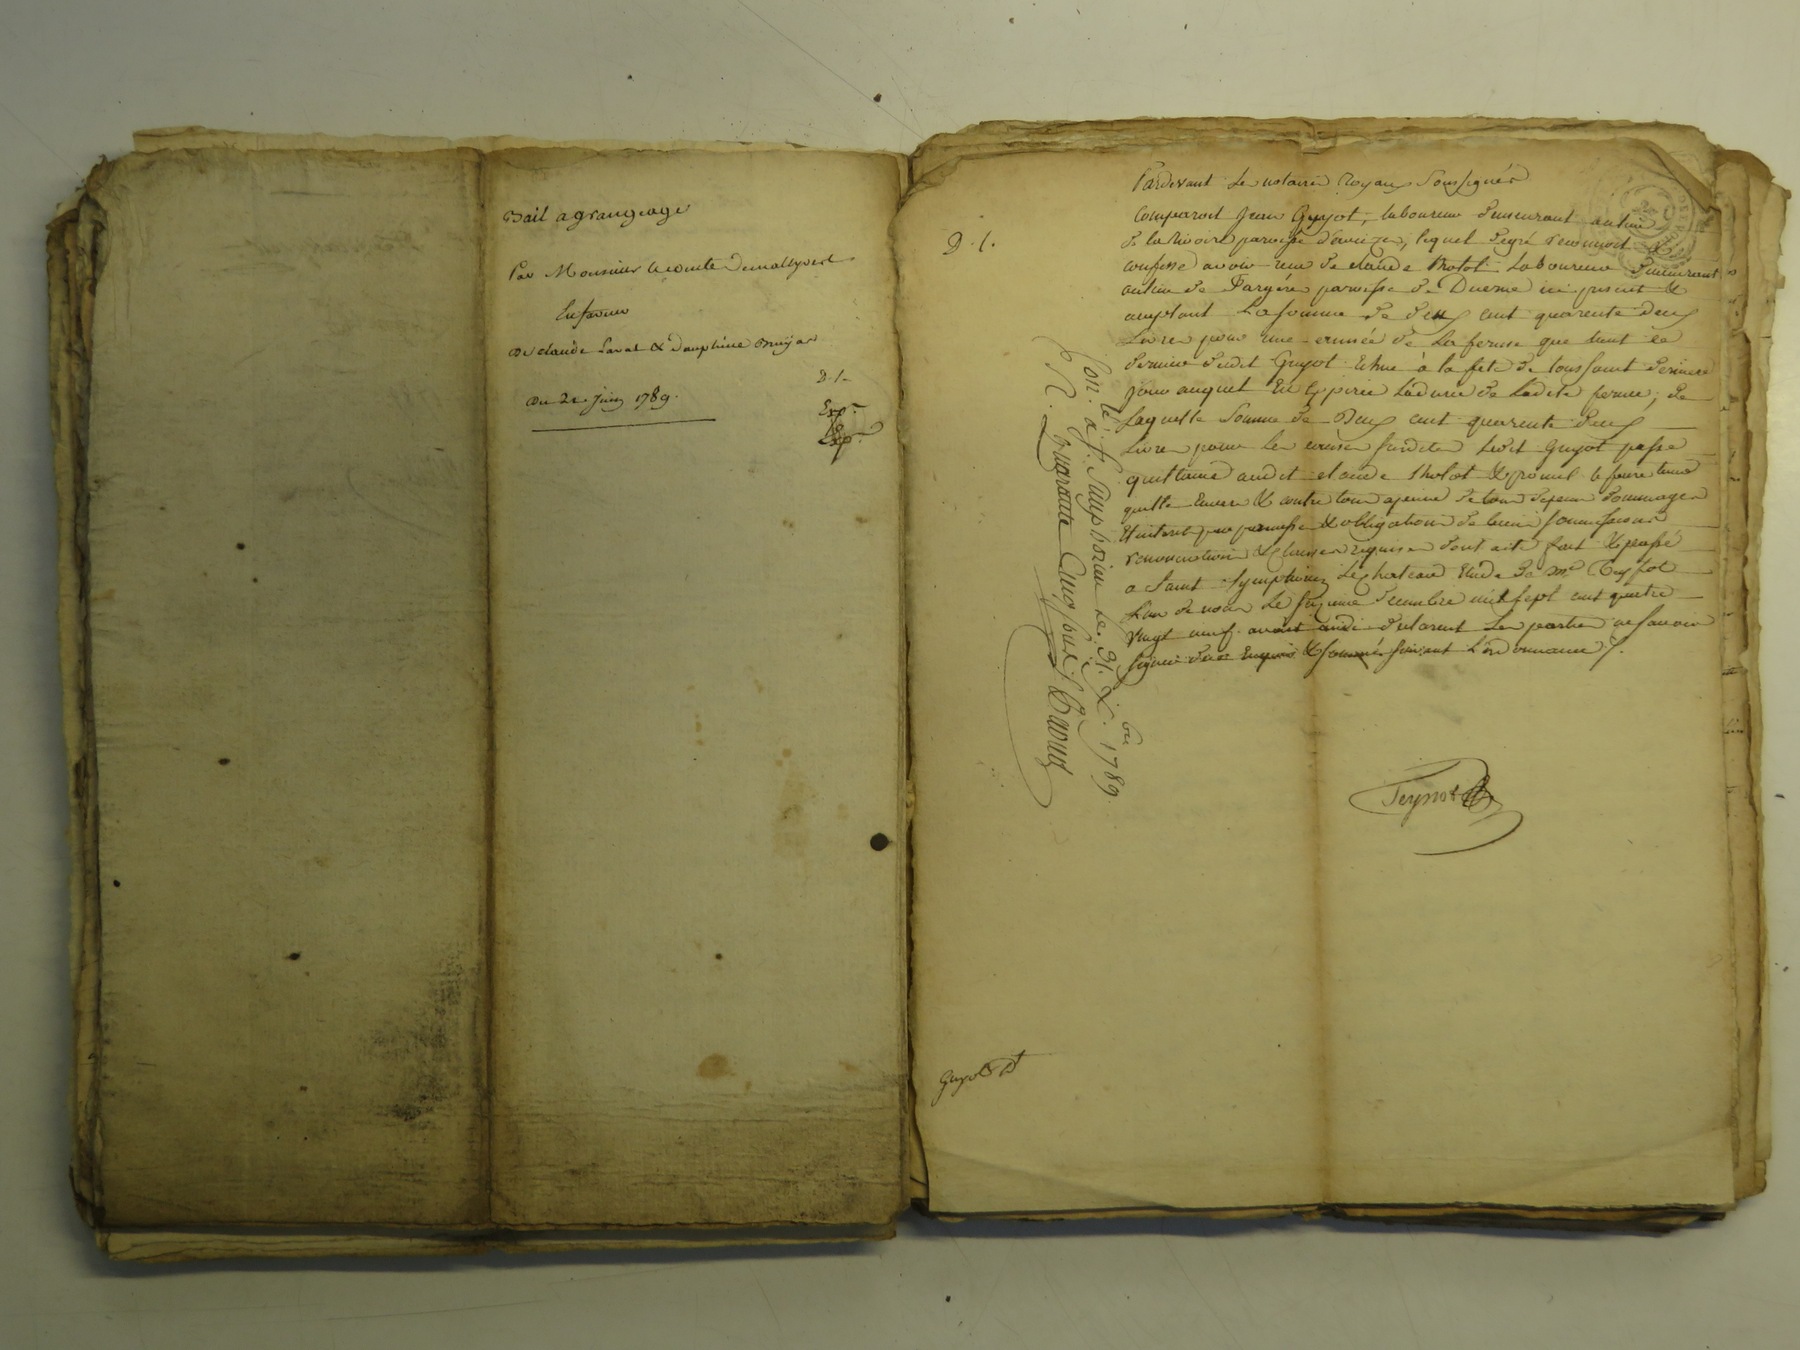 Bail a grangeage
Par Monsieur le comte
En faveur
De claude Laval & Dauphine
Du 22 Juin 1789.
D. 1.
Exp.
Exp.
D. 1.
Pardevant les notaires Royaux soussignés
Comparoit Jean Guyot, laboureur demeurant au lieu
de la Rivoire paroisse d'aveize, lequel de gré reconnoit &
confesse avoir reçu de claude Laboureur demeurant
au lieu de Fargere paroisse de Duerne ici present &
acceptant La somme de deux cent quarente deux
Livres pour une année de La ferme que tient ce
dernier dudit Guyot Echue à la fete de toussaint derniere
jour auquel En Expirée La durée de Ladite ferme, de
Laquelle Somme de Deux cent quarente deux
Livres pour les causes susdites Ledit Guyot passe
quittance audit claude & promet le faire tenir
quitte Envers & contre tous a peine de tous depens dommages
Et interets par promesse & obligation de biens soumissions
renonciations & clauses requises dont acte fait & passé
a Saint Symphorien Le chateau Etude de Me
L'an de nous le decembre mil sept cent quatre
vingt neuf avant midi declarent les parties ne savoir
signer de ce Enquis & sommés suivant L'ordonnance
Con. lé à S. Simphorien le 31. Xbre 1789.
R. quarante cinq sous
Guyot